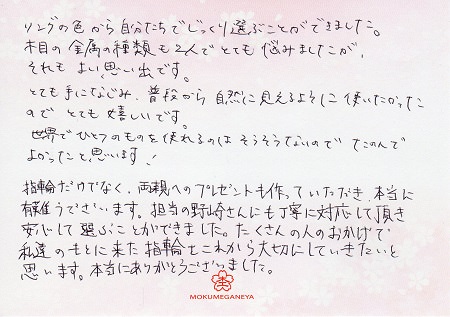 リングの色から自分たちでじっくり選ぶことができました。
木目の金属の種類も2人でとても悩みましたが、
それも よい思い出です。
とても手になじみ、普段から 自然に見えるように 使いたかった
ので とても 嬉しいです。
世界でひとつのものを使れるのは そうそうないので たのんで
よかったと思います!
指輪だけでなく、両親へのプレゼントも作っていただき、本当に
有難うございます。担当の野崎さんにも丁寧に対応して頂き
安心して 選ぶことができました。たくさんの人のおかげで
私達のもとに来た指輪をこれから大切にしていきたいと
思います。本当にありがとうございました。
MOKUMEGANEYA